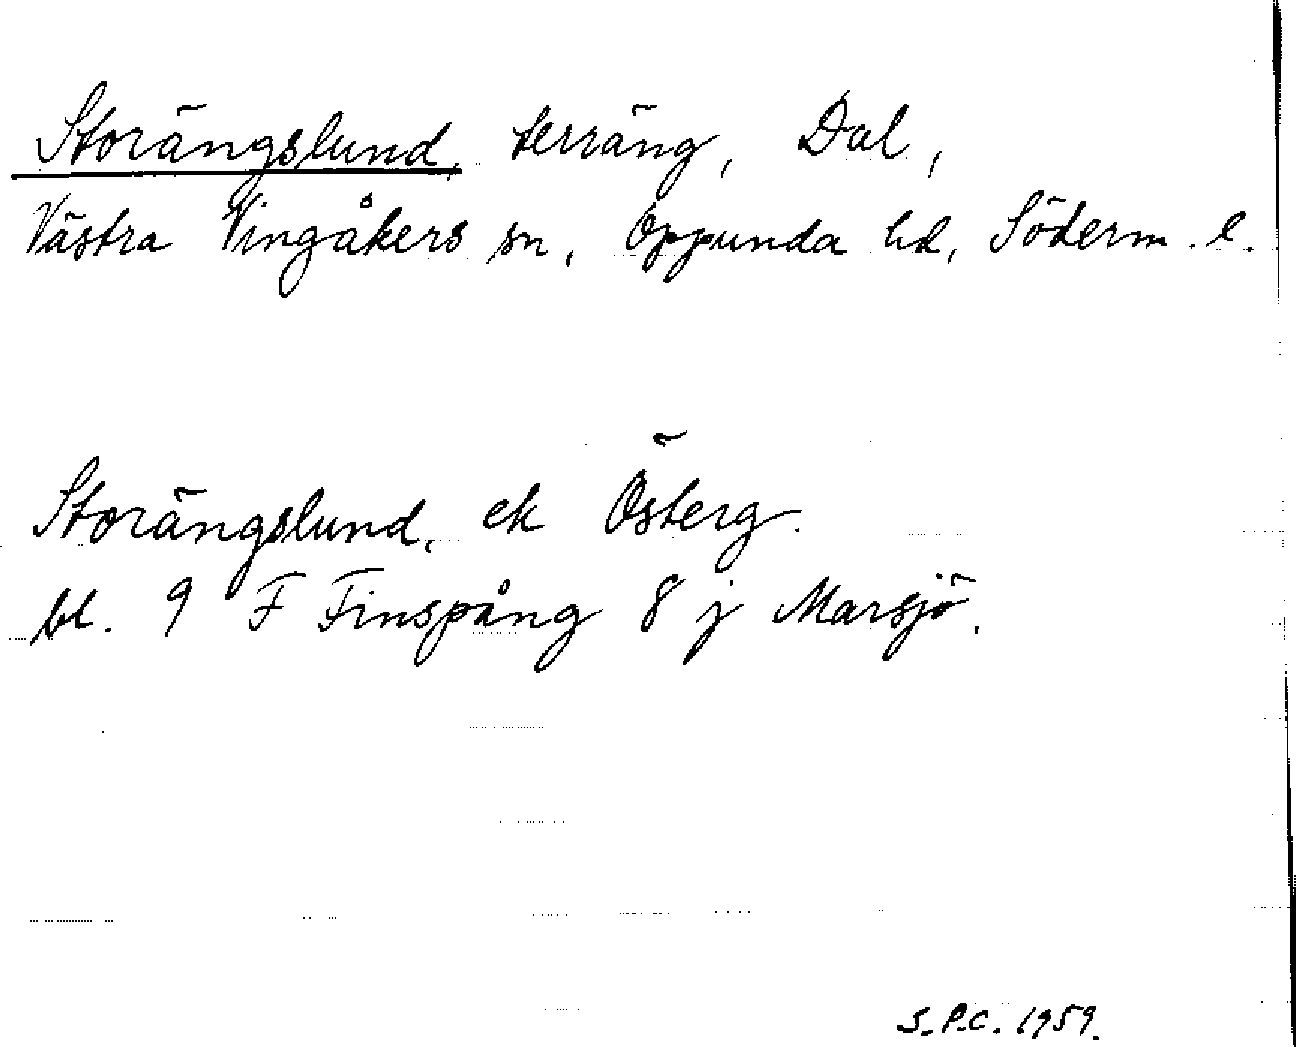 Storängslund, terräng, Dal,
Västra Vingåkers sn, Oppunda hd, Söderm. l.
Storängslund, ek Österg.
bl. 9 F Finspång 8 j Marsjö.
S.P.C. 1959.